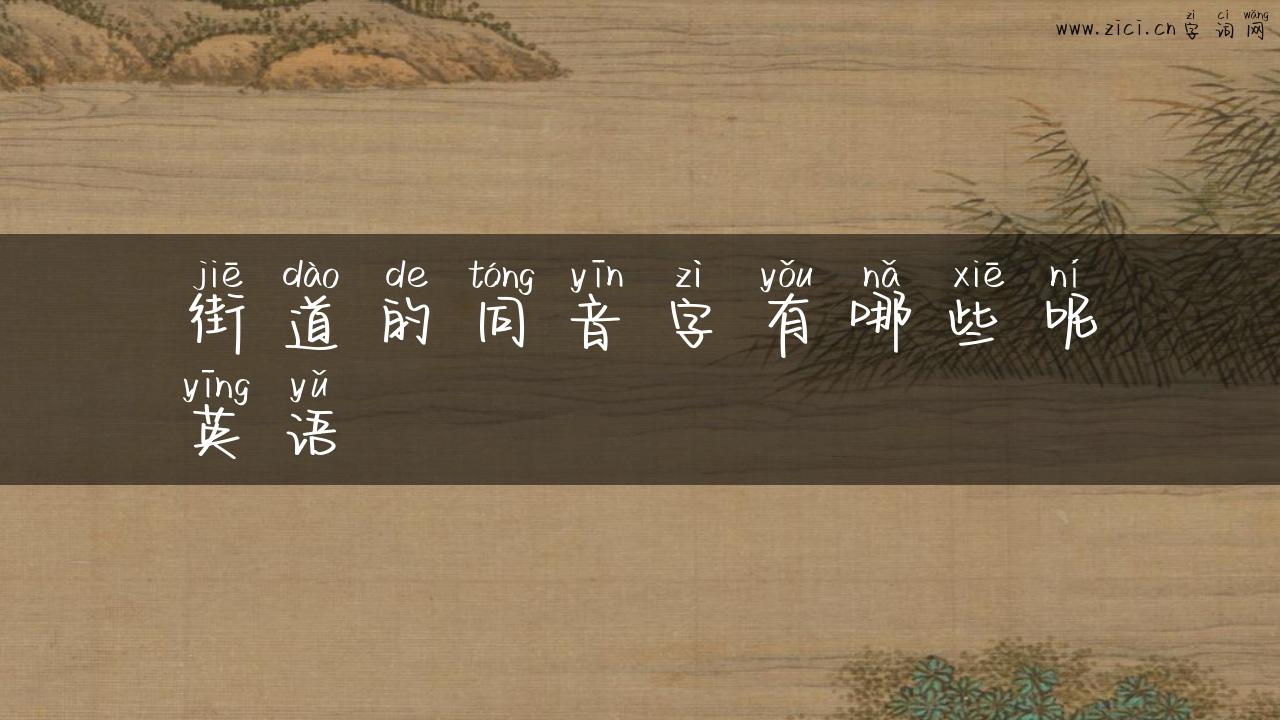 zì cí wǎng
www.zici.cn 字词网
jiē dào de tóng yīn zì yǒu nǎ xiē ní
街道的同音字有哪些呢
yīng yǔ
英语